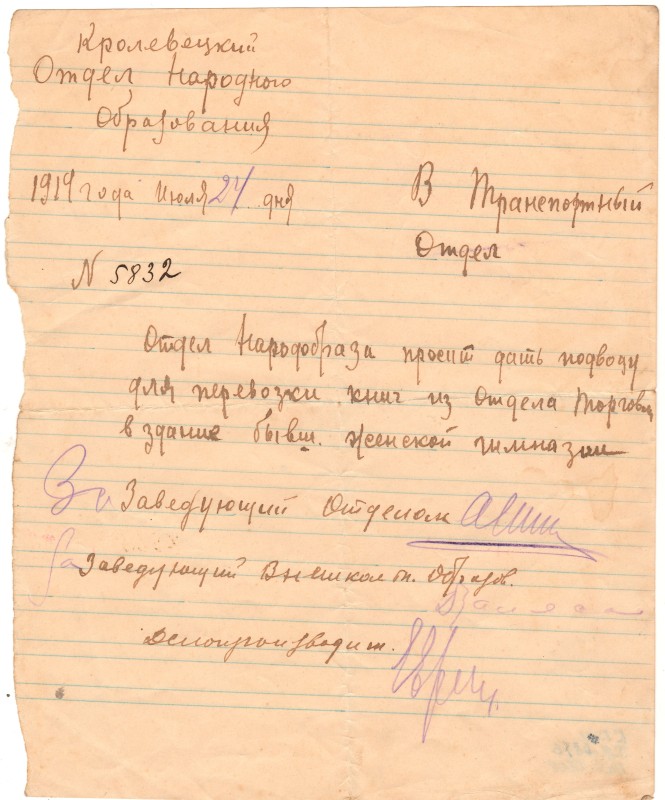 Кролевецкий
Отдел Народного
Образования
1919 года Июля 24 дня
В Транспортный
Отдел
N 5832
Отдел Народобраза просит дать подводу
для перевозки книг из Отдела Торговли
в здание бывш. женской гимназии
За Заведующий Отделом
За Заведующий Внешкольн. Образов.
Делопроизводит.